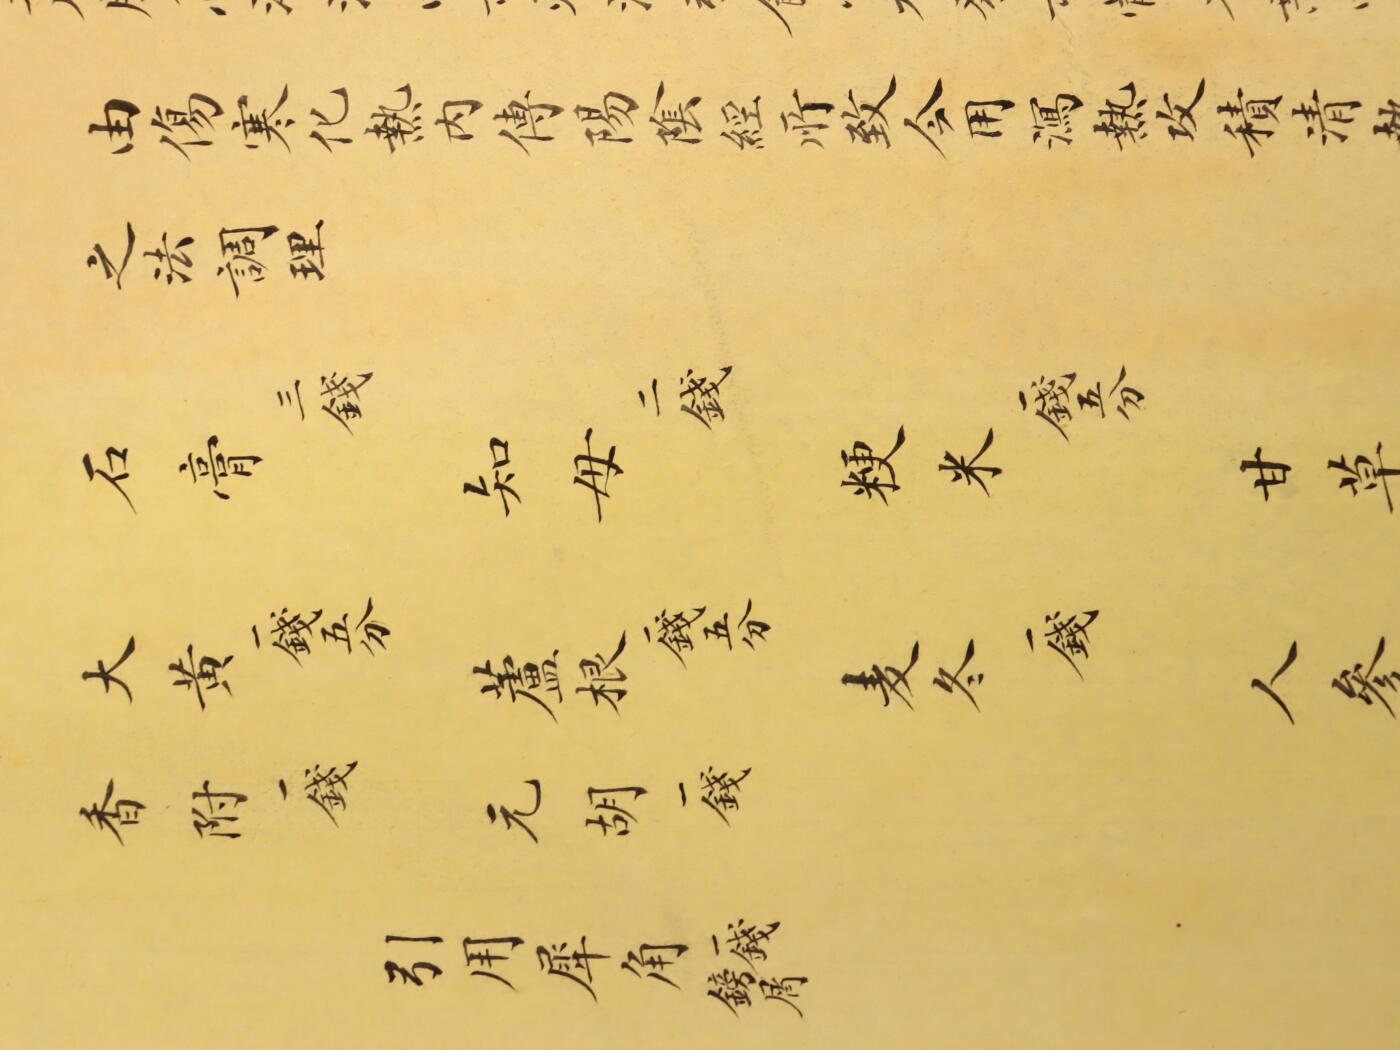 由傷寒化熱内傳陽陰經所致今用瀉熱攻積清
之法調理
石膏三錢 知母二錢 粳米一錢五分 甘草
大黃一錢五分 蘆根一錢五分 麦冬一錢 人參
香附一錢 元胡一錢
引用犀角一錢鎊屑